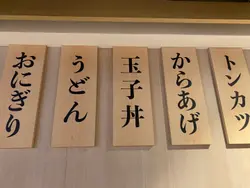 トンカツ
からあげ
玉子丼
うどん
おにぎり